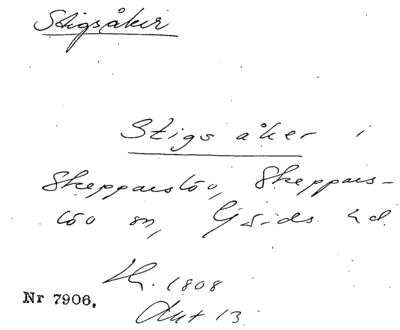 Stigsåker
Stigs åker i
Skepparslöv, Skeppars-
löv sn, Gärds hd.
Lh. 1808
Akt 13
Nr 7906.